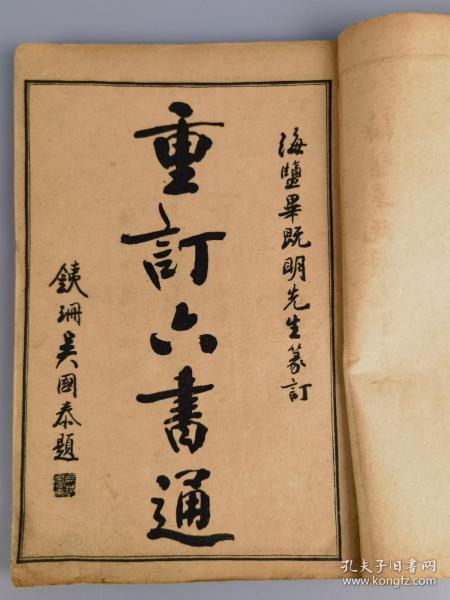 海鹽畢既明先生篆訂
重訂六書通
銕珊吳國泰題
孔夫子旧书网
www.kongfz.com